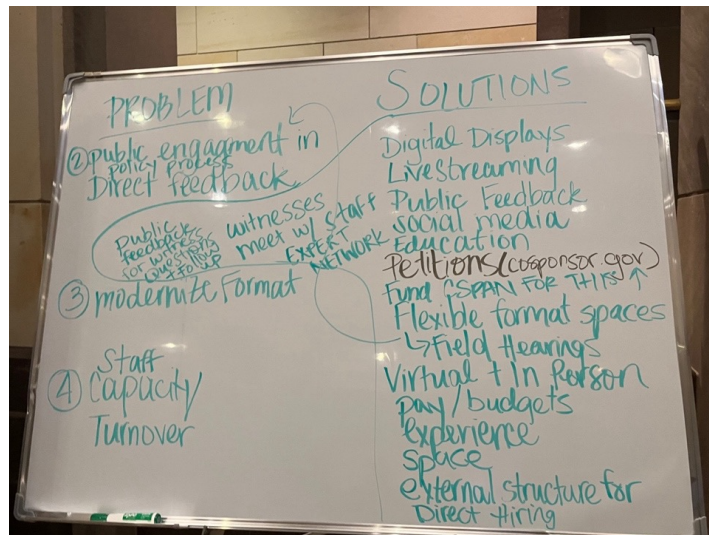 PROBLEM
② public engagment in
policy process
Direct feedback
public
feedback
for witness
questions
+ follow
up
witnesses
meet w/ staff
EXPERT
NETWORK
③ modernize Format
④ Staff
Capacity/
Turnover
SOLUTIONS
Digital Displays
Livestreaming
Public Feedback
social media
Education
Petitions (cosponsor.gov)
Fund CSPAN FOR THIS ↑
Flexible format spaces
↳ Field Hearings
Virtual + In Person
pay/budgets
experience
space
external structure for
Direct Hiring